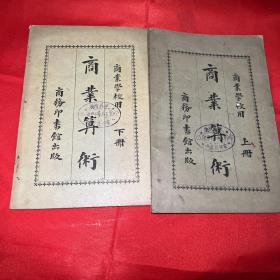 商業學校用
下冊
商業算術
商務印書館出版
商業學校用
上冊
商業算術
商務印書館出版